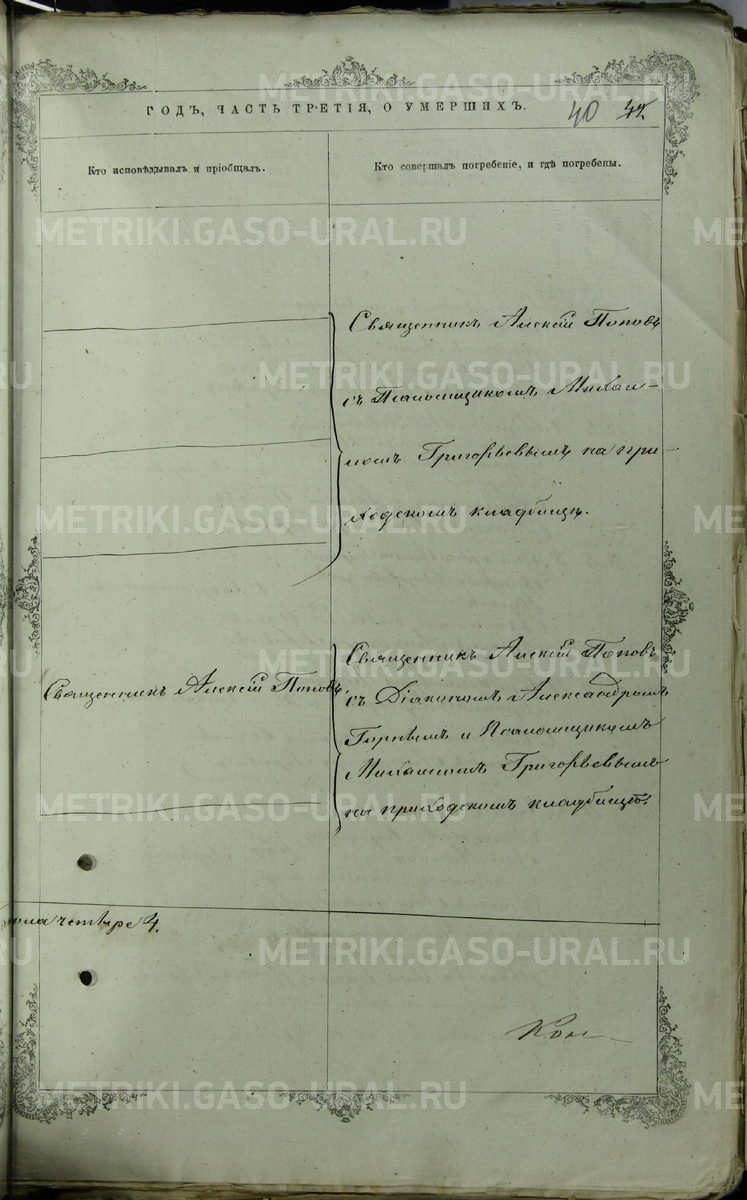 ГОДЪ, ЧАСТЬ ТРЕТІЯ, О УМЕРШИХЪ.
40 42
Кто исповѣдывалъ и пріобщалъ.
Кто совершалъ погребеніе, и гдѣ погребены.
Священникъ Алексій Поповъ
съ Псаломщикомъ Михаи-
ломъ Григорьевымъ на при-
ходскомъ кладбищѣ.
Священникъ Алексій Поповъ
Священникъ Алексій Поповъ
съ Діакономъ Александромъ
и Псаломщикомъ
Михаиломъ Григорьевымъ
на приходскомъ кладбищѣ.
четыре 4.
METRIKI.GASO-URAL.RU